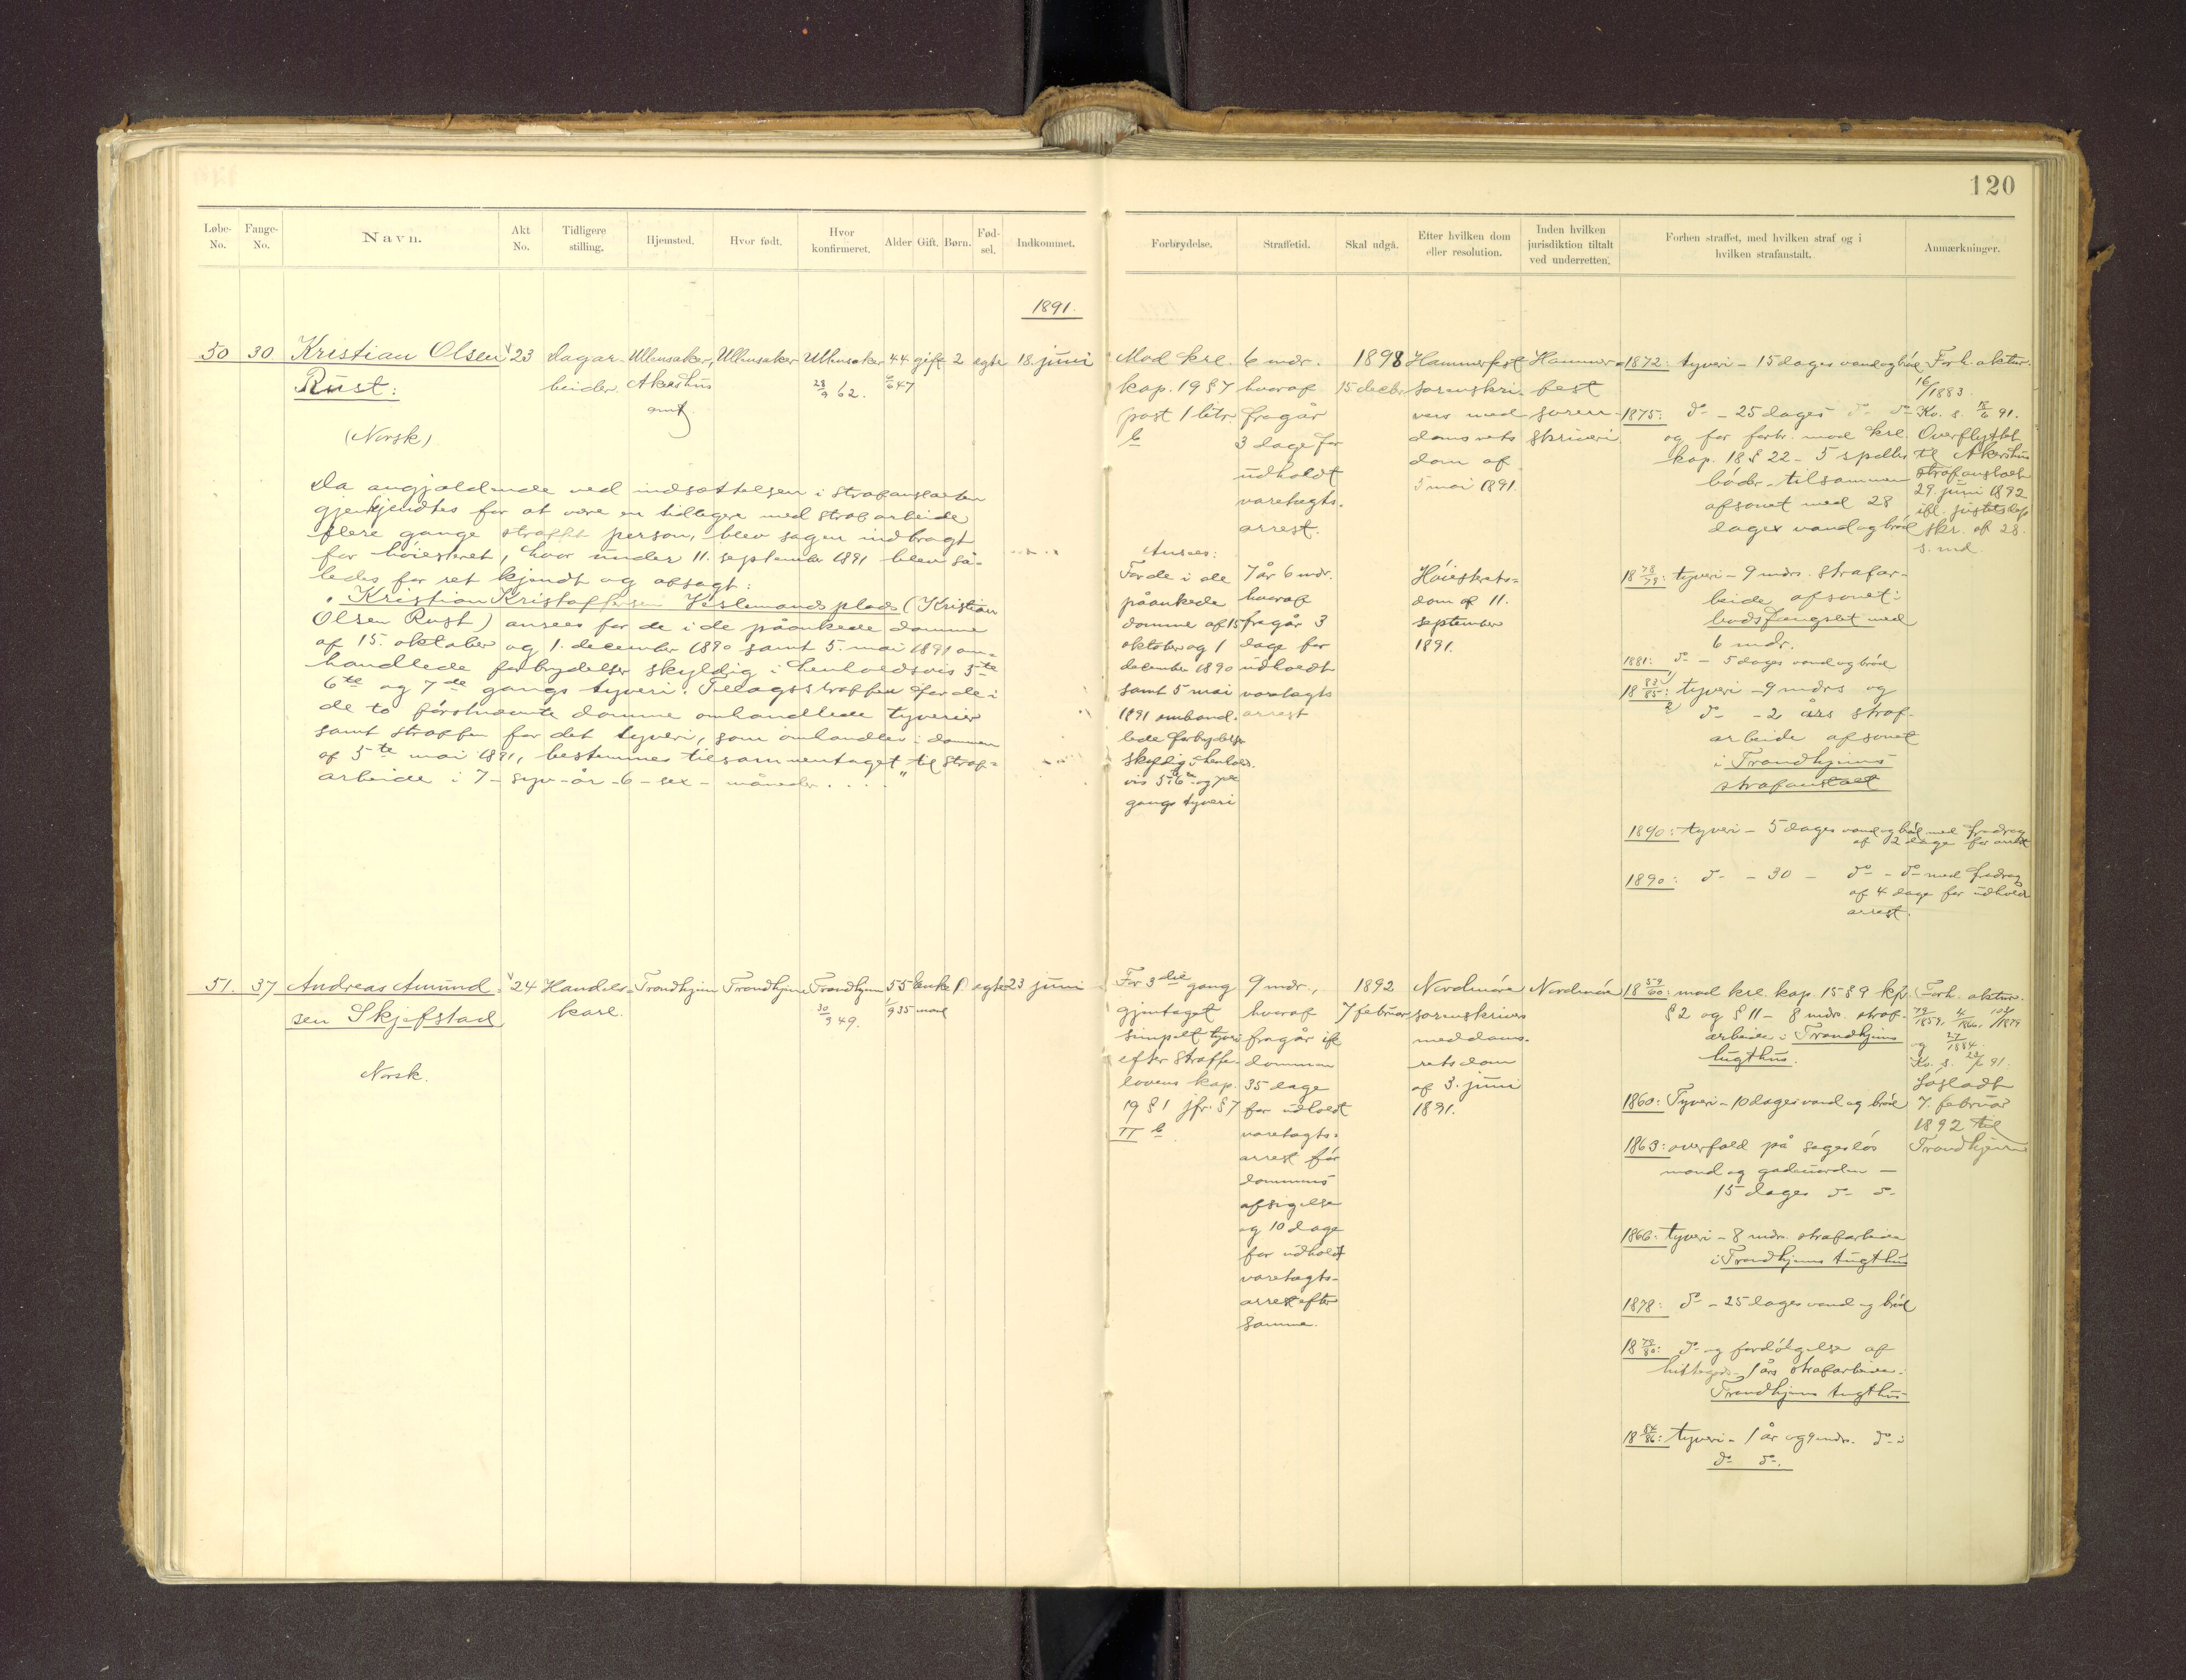 120
Løbe-No.
Fange-No.
Navn.
Akt No.
Tidligere stilling.
Hjemsted.
Hvor født.
Hvor konfirmeret.
Alder
Gift.
Børn.
Fød-sel.
Indkommet.
Forbrydelse.
Straffetid.
Skal udgå.
Efter hvilken dom eller resolution.
Inden hvilken jurisdiktion tiltalt ved underretten.
Forhen straffet, med hvilken straf og i hvilken strafanstalt.
Anmærkninger.
1891.
50
30
Kristian Olsen
Rust:
(Norsk)
23
Dagar-
beider.
Ullensaker,
Akershus
amt
Ullensaker
Ullensaker
28/9 62.
44
6/6 47
gift
2
egte
18. juni
Da angjældende ved indsættelsen i strafanstalten
gjenkjendtes for at være en tidligere med strafarbeide
flere gange straffet person, blev sagen indbragt
for høiesteret, hvor under 11. september 1891 blev så-
ledes for ret kjendt og afsagt:
"Kristian Kristoffersen Veslemandsplads (Kristian
Olsen Rust) ansees for de i de påankede domme
af 15. oktober og 1. december 1890 samt 5. mai 1891 om-
handlede forbrydelser skyldig i henholdsvis 5te
6te og 7de gangs tyveri. Tillægsstraffen for de i
de to førstnævnte domme omhandlede tyverier
samt straffen for det tyveri, som omhandles i dommen
af 5te mai 1891, bestemmes tilsammentaget til straf-
arbeide i 7 - syv - år - 6 - sex - måneder . . . ."
Mod krl.
kap. 19 § 7
post 1 litr.
b
Ansees:
For de i de
påankede
domme af 15
oktober og 1
december 1890
samt 5 mai
1891 omhand-
lede forbrydelser
skyldig i henhold-
vis 5te 6te og 7de
gangs tyveri
6 mdr.
hvoraf
fragår
3 dage for
udholdt
varetægts-
arrest.
7 år 6 mdr.
hvoraf
fragår 3
dage for
udholdt
varetægts
arrest
1898
15 decbr
Hammerfest
sorenskri-
vers med
domsrets
dom af
5 mai 1891.
Høiesterets-
dom af 11.
september
1891.
Hammer-
fest
soren-
skriveri
1872: tyveri - 15 dages vand og brød
1875: do - 25 dages do do
og for forbr. mod krl.
kap. 18 § 22 - 5 spdlrs
bøder - tilsammen
afsonet med 28
dages vand og brød
18 78/79: tyveri - 9 mdrs. strafar-
beide afsonet i
bodsfængslet med
6 mdr.
1881: do - 5 dages vand og brød
18 83/85: 1) tyveri - 9 mdrs og
2) do - 2 års straf-
arbeide afsonet
i Trondhjems
strafanstalt
1890: tyveri - 5 dages vand og brød med fradrag
af 2 dage for arrest
1890: do - 30 - do - do med fradrag
af 4 dage for udholdt
arrest.
Forh. aktnr.
16/1883.
Ko. s. 18/6 91.
Overflyttet
til Akershus
strafanstalt
29. juni 1892
ifl. justitsdep
skr. af 28.
s. md.
51.
37
Andreas Amund-
sen Skjefstad
Norsk.
24
Handels-
karl.
Trondhjem
Trondhjem
Trondhjem
30/9 49.
55
1/9 35
Enke
mand
1
egte
23 juni
For 3die gang
gjentaget
simpelt tyveri
efter straffe-
lovens kap.
19 § 1 jfr. § 7
II b.
9 mdr.,
hvoraf
fragår ifl.
dommen
35 dage
for udholdt
varetægts-
arrest før
dommens
afsigelse
og 10 dage
for udholdt
varetægts-
arrest efter
samme.
1892
7 februar
Nordmøre
sorenskrivers
meddoms-
rets dom
af 3. juni
1891.
Nordmøre
18 59/60: mod krl. kap. 15 § 9 kfr.
§ 2 og § 11 - 8 mdr. straf-
arbeide i Trondhjems
tugthus.
1860: Tyveri - 10 dages vand og brød
1863: overfald på sagesløs
mand og gadeuorden -
15 dages do do
1866: tyveri - 8 mdr. strafarbeide
i Trondhjems tugthus
1878: do - 25 dages vand og brød
18 79/80: do og fordølgelse af
hittegods - 1 års strafarbeide i
Trondhjems tugthus
18 84/86: tyveri - 1 år og 9 mdr. do i
do do.
Forh. aktnr.
1859, 4/1866, 1879
og 27/1884.
Ko. s. 91.
Løsladt
7. februar
1892 til
Trondhjem